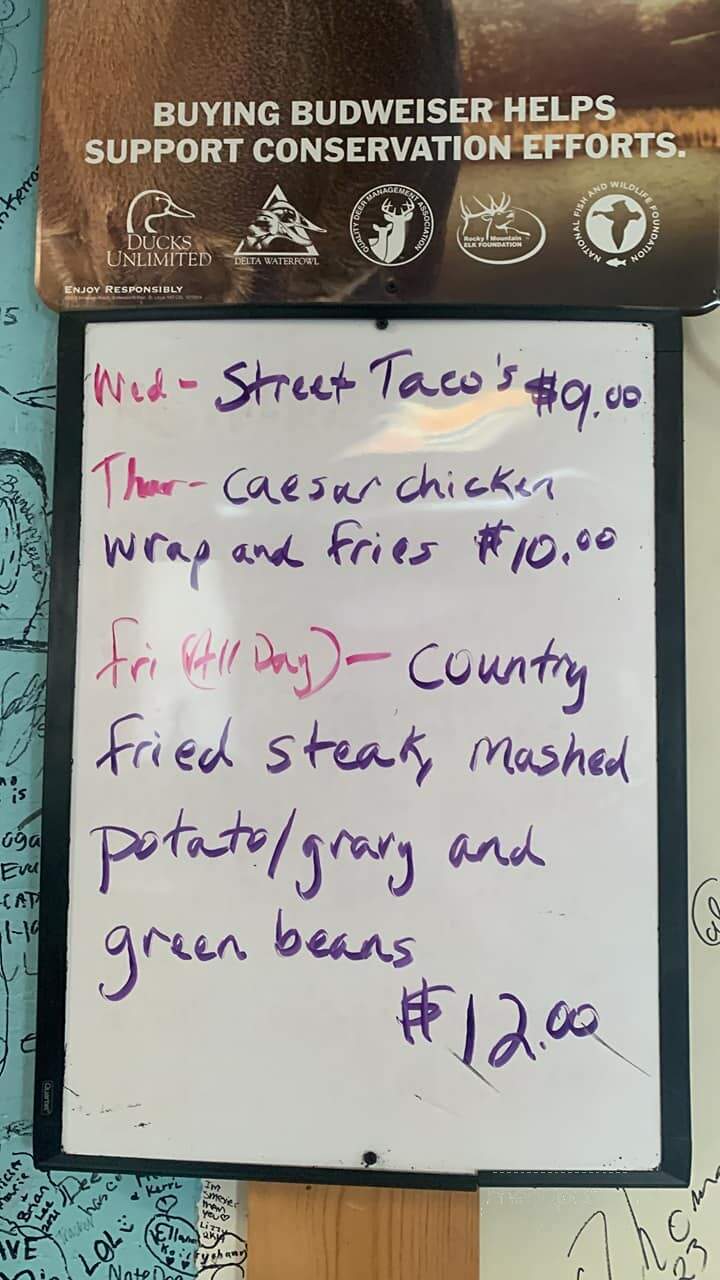 BUYING BUDWEISER HELPS
SUPPORT CONSERVATION EFFORTS.
DUCKS
UNLIMITED
DELTA WATERFOWL
QUALITY DEER MANAGEMENT ASSOCIATION
Rocky Mountain
ELK FOUNDATION
NATIONAL FISH AND WILDLIFE FOUNDATION
ENJOY RESPONSIBLY
Wed - Street Taco's $9.00
Thur - Caesar chicken
wrap and fries $10.00
Fri (All Day) - Country
fried steak, mashed
potato/gravy and
green beans
$12.00
Quartet
Brian
Kerri
I'm
smarter
than
you
Lizzy
LOL